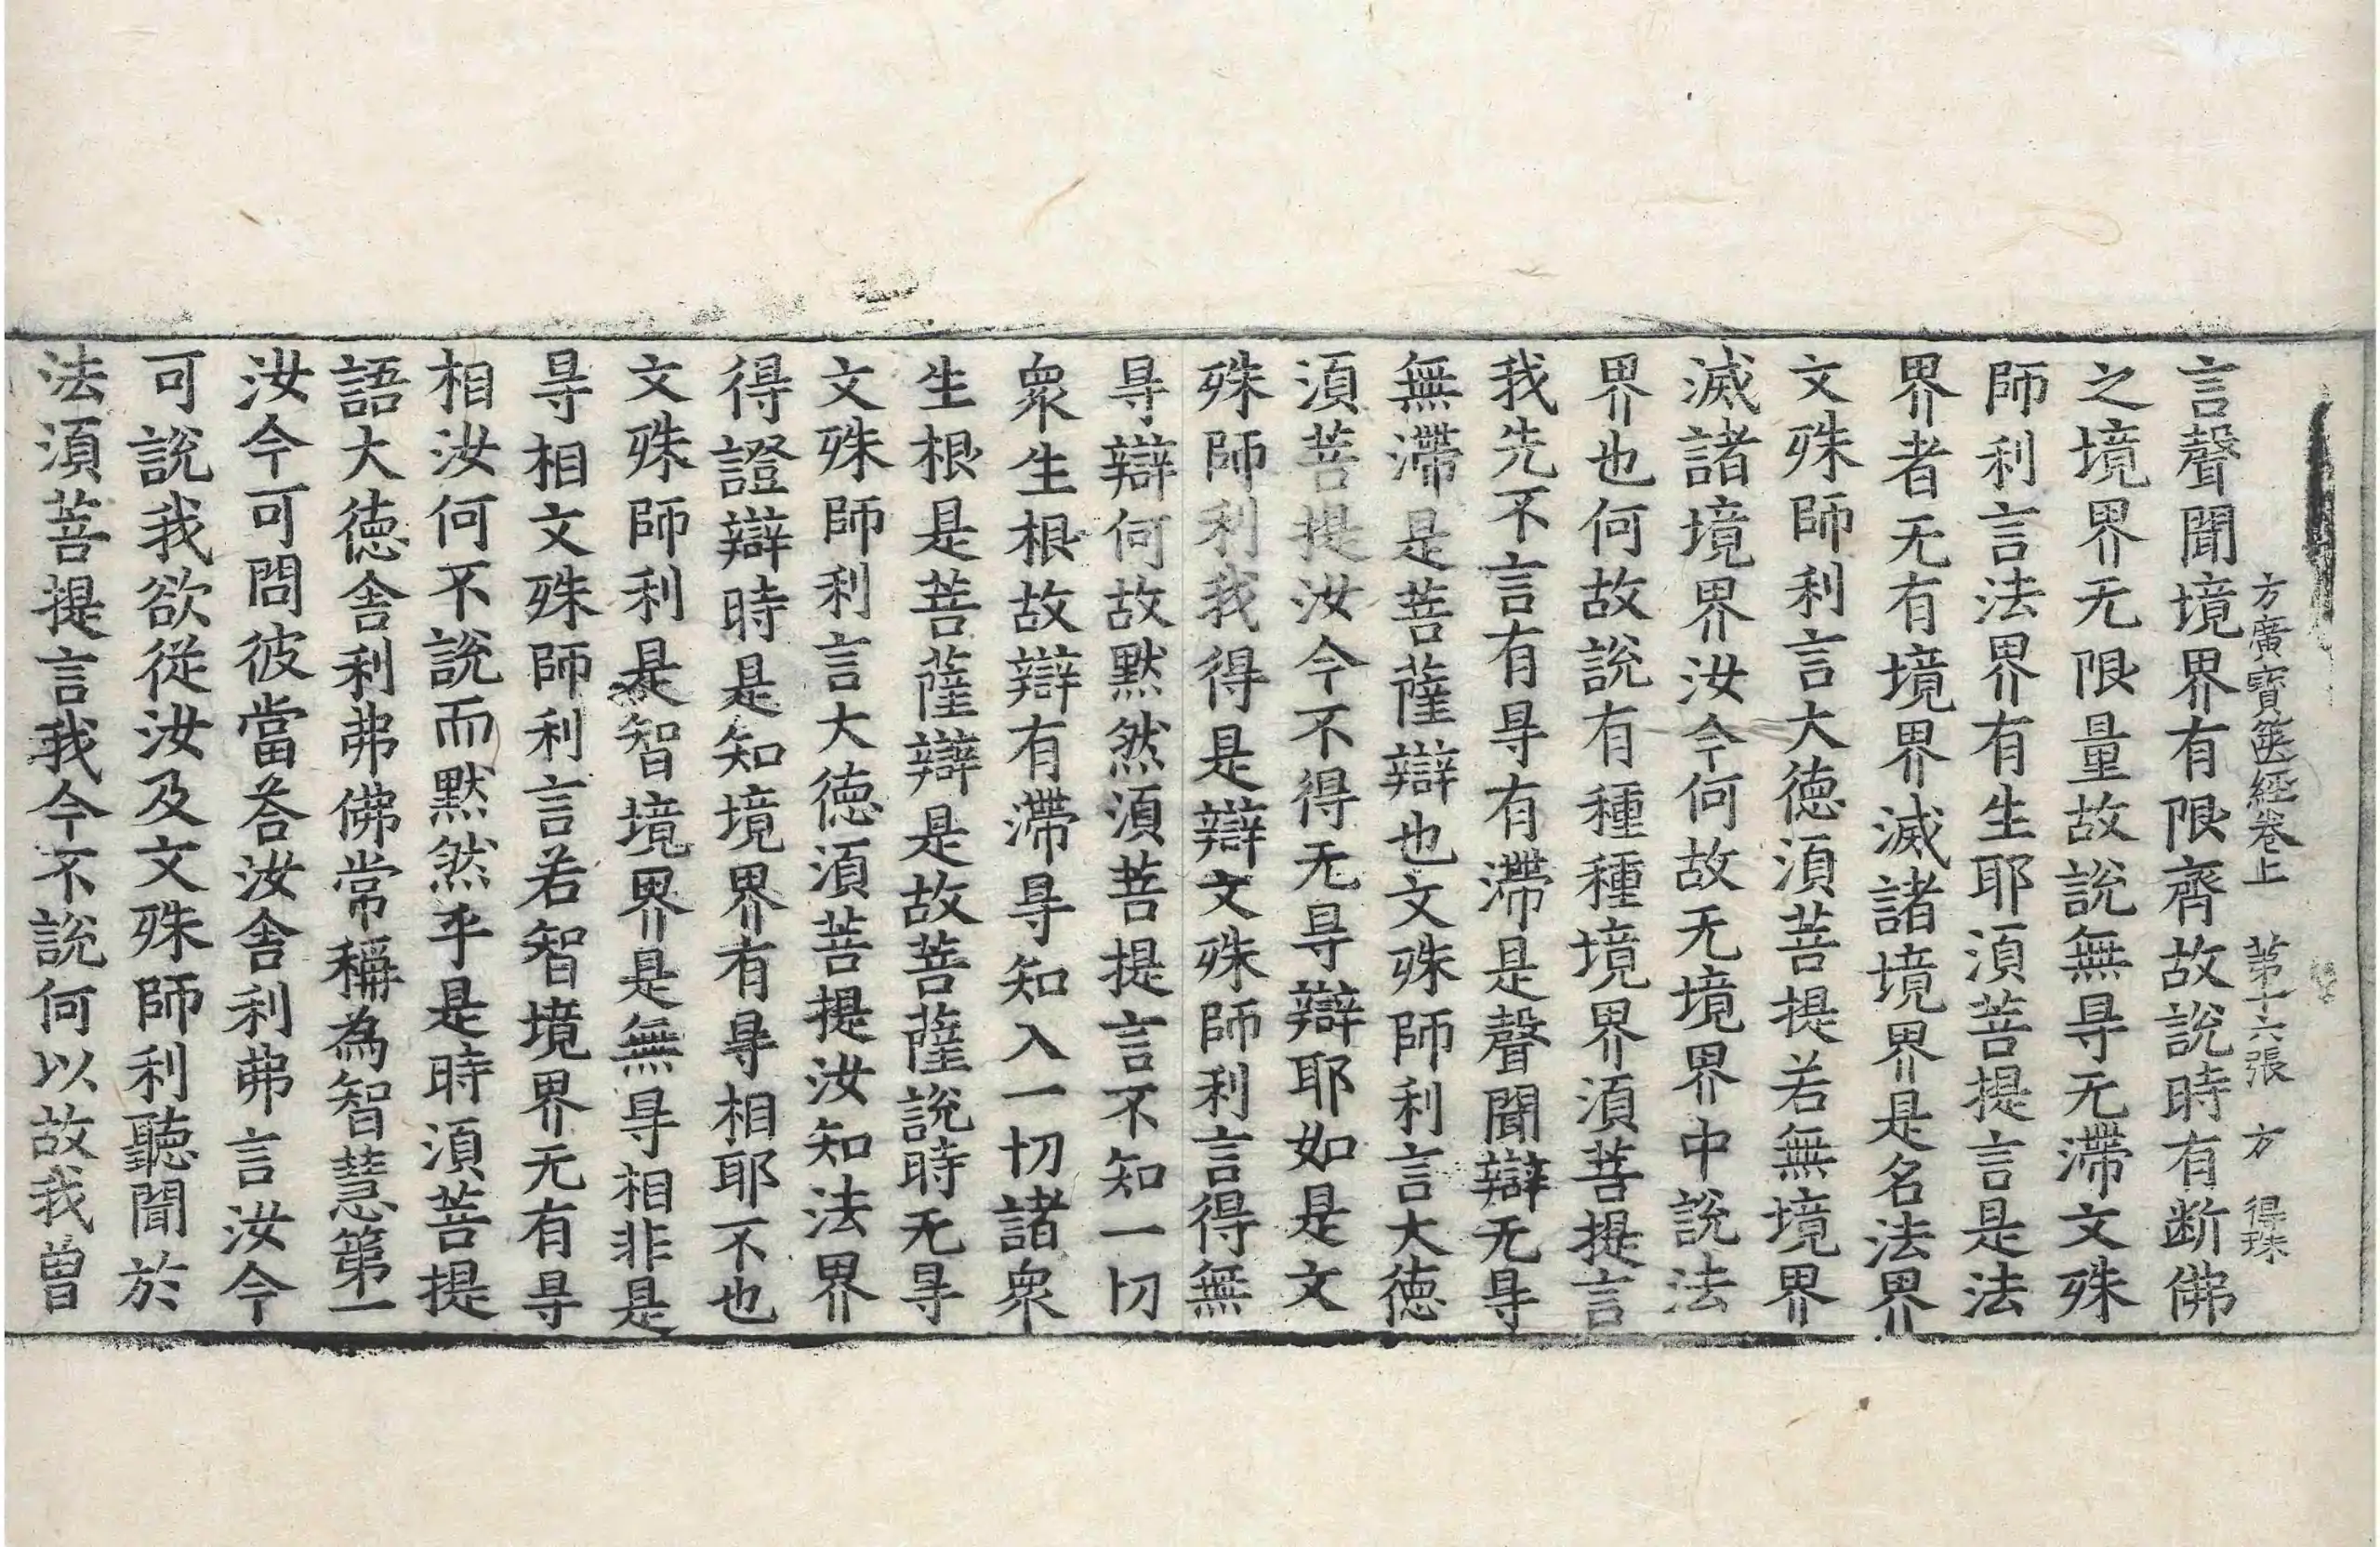 方廣寶篋經卷上　第十六張　方　得珠
言聲聞境界有限齊故說時有断佛
之境界无限量故說無㝵无滯文殊
師利言法界有生耶湏菩提言是法
界者无有境界滅諸境界是名法界
文殊師利言大徳湏菩提若無境界
滅諸境界汝今何故无境界中說法
界也何故說有種種境界湏菩提言
我先不言有㝵有滯是聲聞辯无㝵
無滯是菩薩辯也文殊師利言大徳
湏菩提汝今不得无㝵辯耶如是文
殊師利我得是辯文殊師利言得無
㝵辯何故默然湏菩提言不知一切
衆生根故辯有滯㝵知入一切諸衆
生根是菩薩辯是故菩薩說時无㝵
文殊師利言大徳湏菩提汝知法界
得證辯時是知境界有㝵相耶不也
文殊師利是智境界是無㝵相非是
㝵相文殊師利言若智境界无有㝵
相汝何不說而默然乎是時湏菩提
語大徳舎利弗佛常稱為智慧第一
汝今可問彼當荅汝舎利弗言汝今
可說我欲從汝及文殊師利聽聞於
法湏菩提言我今不說何以故我曾